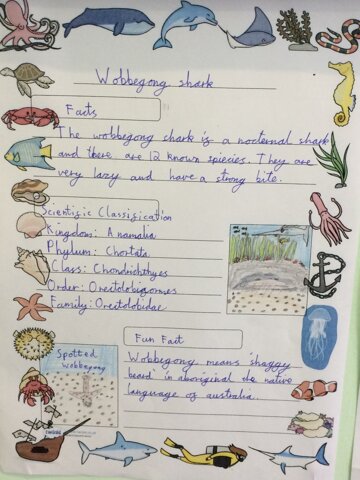 Wobbegong shark
Facts
The wobbegong shark is a nocternal shark
and there are 12 known spiecies. They are
very lazy and have a strong bite.
Scientific Classification
Kingdom: Anamalia
Phylum: Chortata
Class: Chondrichthyes
Order: Orectolobiformes
Family: Orectolobidae
Fun Fact
Wobbegong means shaggy
beard in aboriginal the native
language of australia.
Spotted
wobbegong